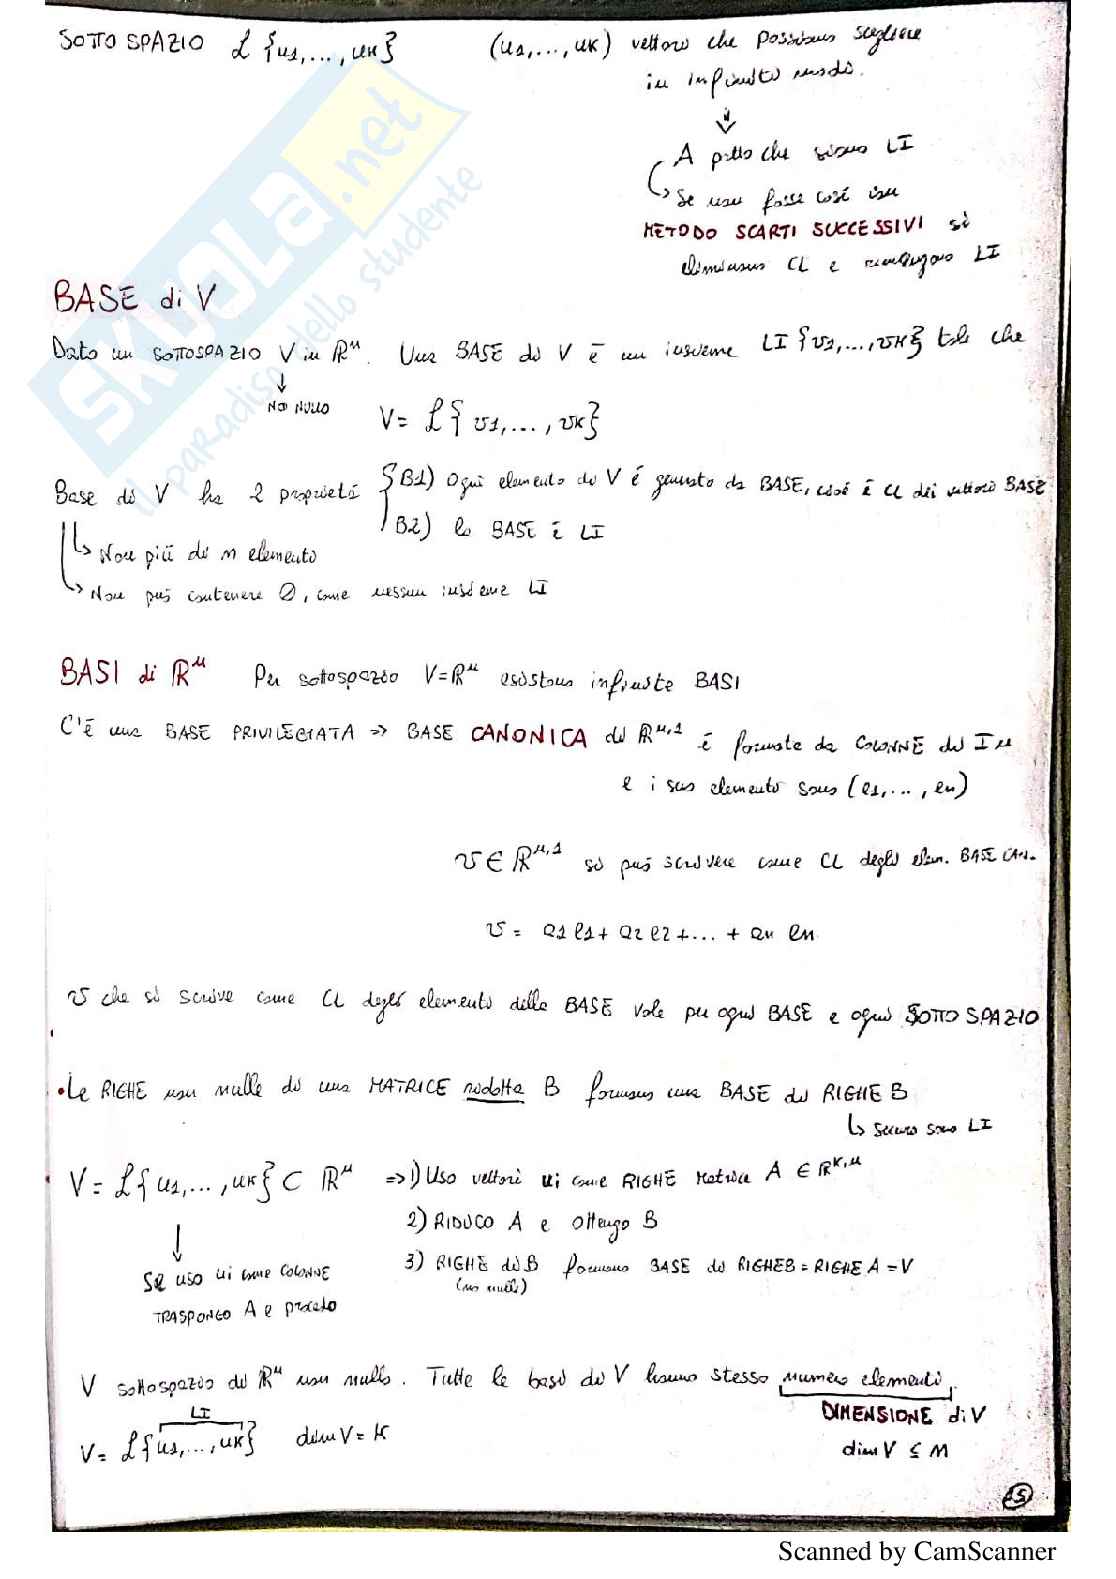 SOTTO SPAZIO L {u1,..., uk} (u1,..., uk) vettori che possiamo scegliere
in infiniti modi.
↓
A patto che siano LI
↳ Se non fosse così con
METODO SCARTI SUCCESSIVI si
eliminano CL e rimangono LI
SKUOLA.net
il paradiso dello studente
BASE di V
Dato un SOTTOSPAZIO V in ℝⁿ. Una BASE di V è un insieme LI {v1,..., vk} tale che
↓
NON NULLO
V = L{v1,..., vk}
Base di V ha 2 proprietà { B1) Ogni elemento di V è generato da BASE, cioè è CL dei vettori BASE
B2) la BASE è LI
↳ Non più di n elementi
↳ Non può contenere 0, come nessun insieme LI
BASI di ℝⁿ Per sottospazio V=ℝⁿ esistono infinite BASI
C'è una BASE PRIVILEGIATA => BASE CANONICA di ℝⁿ,¹ è formata da COLONNE di In
e i suoi elementi sono (e1,..., en)
v ∈ ℝⁿ,¹ si può scrivere come CL degli elem. BASE CAN.
v = a1 e1 + a2 e2 + ... + an en
v che si scrive come CL degli elementi della BASE vale per ogni BASE e ogni SOTTO SPAZIO
• Le RIGHE non nulle di una MATRICE ridotta B formano una BASE di RIGHE B
↳ sono LI
• V = L{u1,..., uk} ⊂ ℝⁿ => 1) Uso vettori ui come RIGHE Matrice A ∈ ℝᵏ,ⁿ
2) RIDUCO A e ottengo B
3) RIGHE di B formano BASE di RIGHE B = RIGHE A = V
(no nulle)
↓
Se uso ui come COLONNE
TRASPONGO A e procedo
V sottospazio di ℝⁿ non nullo. Tutte le basi di V hanno stesso numero elementi.
DIMENSIONE di V
dim V ≤ n
LI
V = L{u1,..., uk} dim V = k
15
Scanned by CamScanner